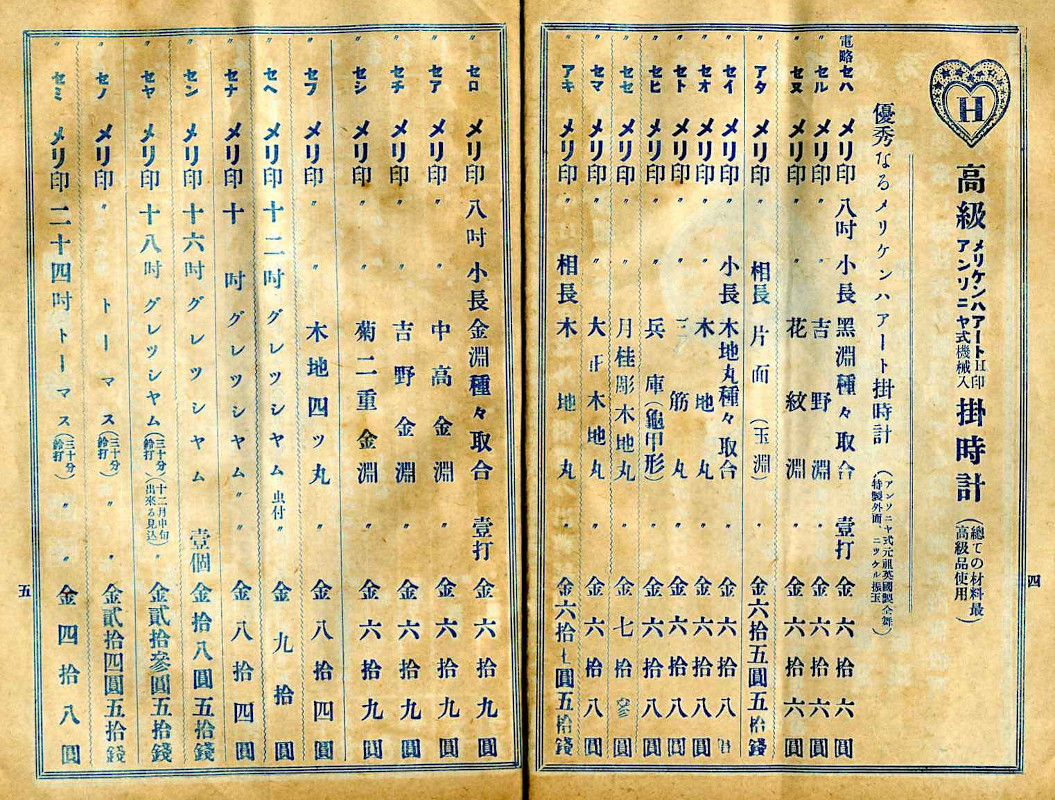 H
高級 メリケンハアートH印 アンソニヤ式機械入 掛時計 (總ての材料最高級品使用)
優秀なるメリケンハアート掛時計 (アンソニヤ式元祖英國製全舞 特製外面、ニツケル振玉)
電略 セハ メリ印 八吋 小長 黑淵種々取合 壹打 金六拾六圓
〃 セル メリ印 〃 〃 吉野淵 〃 金六拾六圓
〃 セヌ メリ印 〃 〃 花紋淵 〃 金六拾六圓
〃 アタ メリ印 〃 相長 片面 (玉淵) 〃 金六拾五圓五拾錢
〃 セイ メリ印 〃 小長 木地丸種々取合 〃 金六拾八圓
〃 セオ メリ印 〃 〃 木地丸 〃 金六拾八圓
〃 セト メリ印 〃 〃 三筋丸 〃 金六拾八圓
〃 セヒ メリ印 〃 〃 兵庫(龜甲形) 〃 金六拾八圓
〃 セセ メリ印 〃 〃 月桂彫木地丸 〃 金七拾參圓
〃 セマ メリ印 〃 〃 大正木地丸 〃 金六拾八圓
〃 アキ メリ印 〃 相長 木地丸 〃 金六拾七圓五拾錢
四
〃 セロ メリ印 八吋 小長 金淵種々取合 壹打 金六拾九圓
〃 セア メリ印 〃 〃 中高金淵 〃 金六拾九圓
〃 セチ メリ印 〃 〃 吉野金淵 〃 金六拾九圓
〃 セシ メリ印 〃 〃 菊二重金淵 〃 金六拾九圓
〃 セフ メリ印 〃 〃 木地四ッ丸 〃 金八拾四圓
〃 セヘ メリ印 十二吋 グレッシヤム 虫付 〃 金九拾圓
〃 セナ メリ印 十吋 グレッシヤム 〃 〃 金八拾四圓
〃 セン メリ印 十六吋 グレッシヤム 壹個 金拾八圓五拾錢
〃 セヤ メリ印 十八吋 グレツシヤム (三十分鈴打) (十二月中旬出來る見込) 金貳拾參圓五拾錢
〃 セノ メリ印 〃 トーマス (三十分鈴打) 〃 金貳拾四圓五拾錢
〃 セミ メリ印 二十四吋 トーマス (三十分鈴打) 〃 〃 金四拾八圓
五